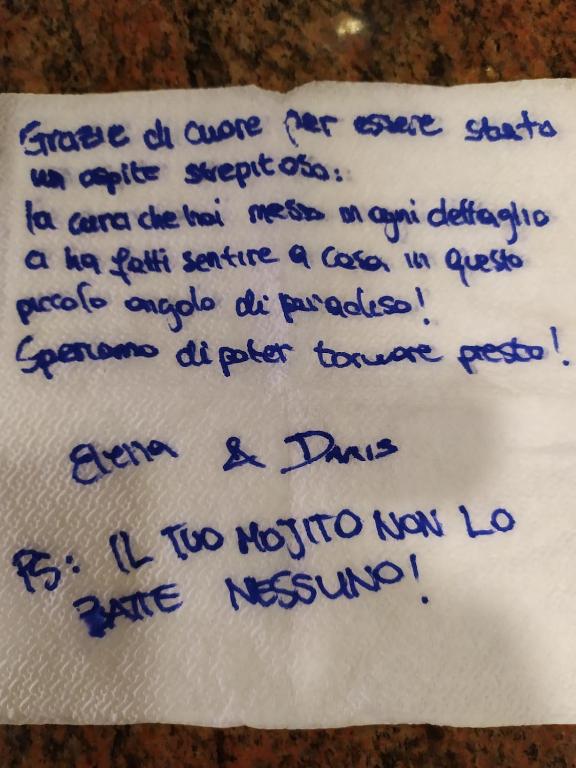 Grazie di cuore per essere stato
un ospite strepitoso:
la cura che hai messo in ogni dettaglio
ci ha fatti sentire a casa in questo
piccolo angolo di paradiso!
Speriamo di poter tornare presto!
Elena & Denis
PS: IL TUO MOJITO NON LO
BATTE NESSUNO!